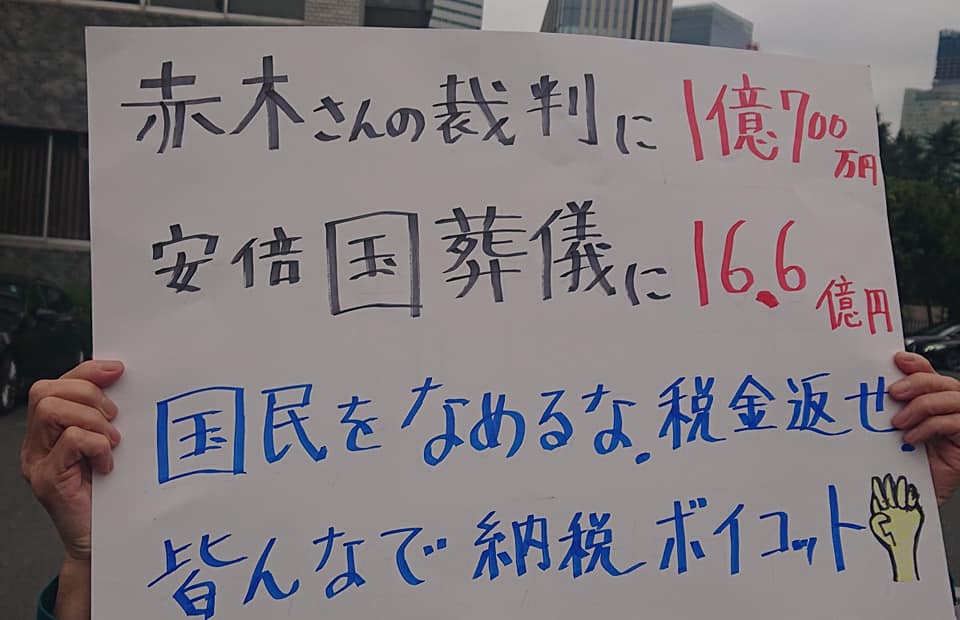 赤木さんの裁判に 1億700万円
安倍国葬儀に 16.6億円
国民をなめるな.税金返せ.
皆んなで納税ボイコット